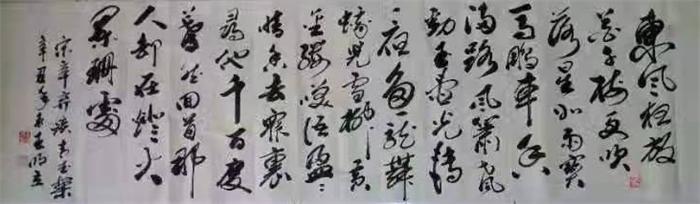 東風夜放
花千樹更吹
落星如雨寶
馬雕車香
滿路風簫聲
動玉壺光轉
一夜魚龍舞
蛾兒雪柳黃
金縷笑語盈盈
暗香去眾裏
尋他千百度
驀然回首那
人却在灯火
闌珊處
宋辛弃疾青玉案
辛丑年